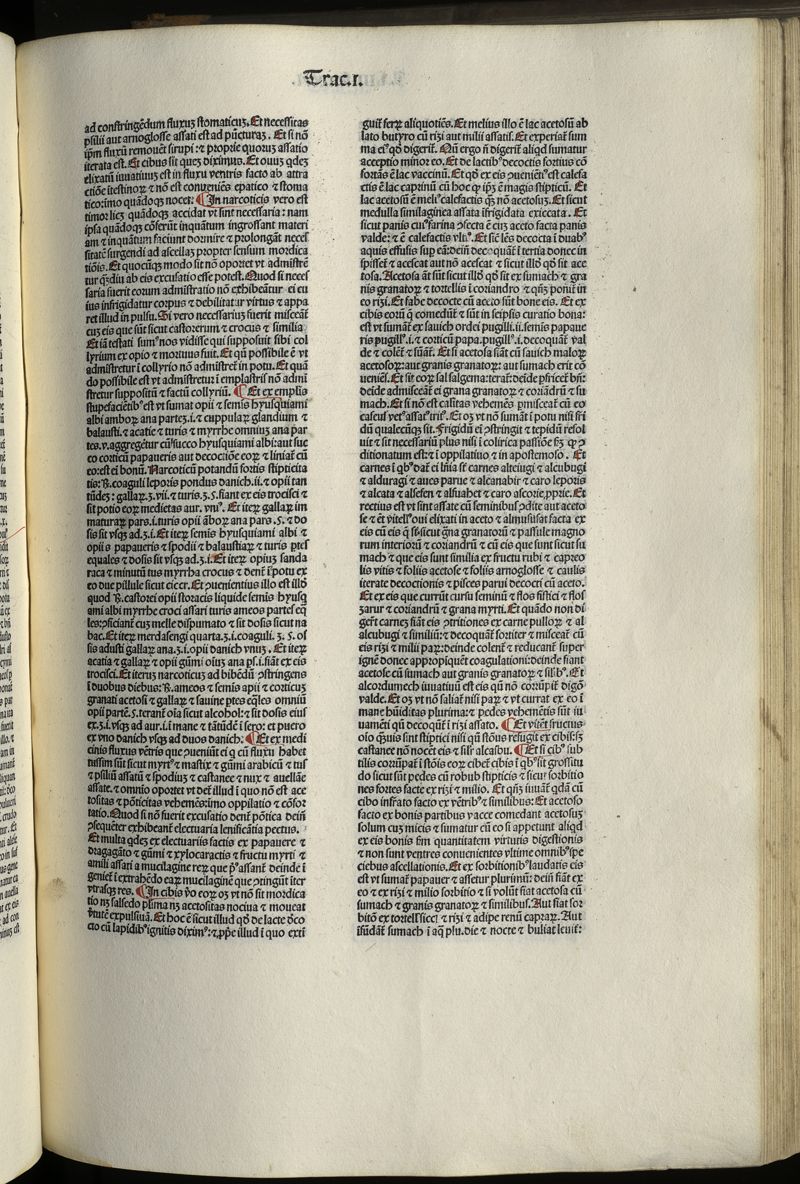 Trac.i.
ad constringēdum fluxuȝ stomaticuȝ. Et necessitas
psilii aut arnoglosse assati est ad pūcturaȝ. Et si nō
ip̄m fluxū remouēt sirupi: ⁊ proprie quoruȝ assatio
iterata est. Et cibus sit queȝ diximus. Et ouuȝ qdeȝ
elixatū iuuatiuuȝ est in fluxu ventris facto ab attra
ctiōe ītestinoꝝ ⁊ nō est conueniēs epatico ⁊ stoma
tico: imo quādoqȝ nocet: ¶ In narcoticis vero est
timor licȝ quādoqȝ accidat vt sint necessaria: nam
ipsa quādoqȝ cōferūt inquātum ingrossant materi
am ⁊ inquātum faciunt dormire ⁊ prolongāt neces
sitatē surgendi ad ascellaȝ propter sensum mordica
tiōis. Et quocūqȝ modo sit nō oportet vt admistrē
tur qȝdiu ab eis excusatio esse potest. Quod si neces
saria fuerit eorum admīstratio nō exhibeāntur ei cu
ius infrigidatur corpus ⁊ debilitatur virtus ⁊ appa
ret illud in pulsu. Si vero necessariuȝ fuerit misceāt̄
cuȝ eis que sūt sicut castorerum ⁊ crocus ⁊ similia
Et iā testati sumus nos vidisse qui supposuit sibi col
lyrium ex opio ⁊ mortuus fuit. Et qn̄ possibile ē vt
admīstretur ī collyrio nō admīstret̄ in potu. Et quā
do possibile est vt admīstretur ī emplastris nō admī
stretur suppositū ⁊ factū collyriū. ¶ Et ex emplis
stupefaciētibꝰ est vt sumat̄ opii ⁊ semīs hyusquiami
albi amboꝝ ana parteȝ.i. ⁊ cuppulaꝝ glandium ⁊
balausti. ⁊ acatie ⁊ turis ⁊ myrrhe omniuȝ ana par
tes.v. aggregētur cū succo hyusquiami albi: aut suc
co corticū papaueris aut decoctiōe eoꝝ ⁊ liniat̄ cū
eo: est ei bonū. Narcoticū potandū fortis stipticita
tis: ℞. coaguli leporis pondus danich.ii. ⁊ opii tan
tūdeȝ: gallaꝝ.ȝ.vii. ⁊ turis.ȝ.5. fiant ex eis trocisci ⁊
sit potio eoꝝ medietas aur. vniꝰ. Et iteꝝ gallaꝝ im
maturaꝝ pars.i. turis opii āboꝝ ana pars.5. ⁊ do
sis sit vsqȝ ad.ȝ.i. Et iteꝝ semīs hyusquiami albi ⁊
opii ⁊ papaueris ⁊ spodii ⁊ balaustiaꝝ ⁊ turis p̄tes
equales ⁊ dosis sit vsqȝ ad.ȝ.i. Et iteꝝ opiuȝ sanda
raca ⁊ minutū tus myrrha crocus ⁊ dent̄ ī potu ex
eo due pillule sicut cicer. Et ɔuenientius illo est illō
quod ℞. castorei opii storacis liquide semīs hyusq̄
ami albi myrrhe croci assari turis ameos partes eq̄
les: ɔficiant̄ cuȝ melle dispumato ⁊ sit dosis sicut na
bac. Et iteꝝ merdasengi quarta.ȝ.i. coaguli.ȝ.5. os
sis adusti gallaꝝ ana.ȝ.i. opii danich vnuȝ. Et iteꝝ
acatia ⁊ gallaꝝ ⁊ opii gūmi oīuȝ ana ps.i. fiāt ex eis
trocisci. Et iteruȝ narcoticuȝ ad bibēdū ɔstringens
ī duobus diebus: ℞. ameos ⁊ semīs apii ⁊ corticuȝ
granati acetosi ⁊ gallaꝝ ⁊ sauine ptes eq̄les omniū
opii partē.5. terant̄ oīa sicut alcohol: ⁊ sit dosis eius
ex.ȝ.i. vsqȝ ad aur.i. ī mane ⁊ tātūdē ī sero: et puero
ex vno danich vsqȝ ad duos danich: ¶ Et ex medi
cinis fluxus vētris que ɔueniūt ei q̄ cū fluxu habet
tussim sūt sicut myrtꝰ ⁊ mastix ⁊ gūmi arabicū ⁊ tus
⁊ psiliū assatū ⁊ spodiuȝ ⁊ castanee ⁊ nux ⁊ auellāe
assate. ⁊ omnio oportet vt det̄ illud ī quo nō est ace
tositas ⁊ pōticitas vehemēs: imo oppilatio ⁊ cōfor
tatio. Quod si nō fuerit excusatio dent̄ pōtica dein̄
ɔsequēter exhibeant̄ electuaria lenificātia pectus.
Et multa qdeȝ ex electuariis factis ex papauere ⁊
dragagāto ⁊ gūmi ⁊ xylocaractis ⁊ fructu myrti ⁊
amili assati a mucilagine rerȝ que pꝰassant̄ deinde ī
geniet̄ ī extrahēdo eaꝝ mucilaginē que ɔtingūt īter
vtrasqȝ res. ¶ In cibis v̄o eoꝝ oȝ vt nō sit mordica
tio nȝ salsedo p̄lima nȝ acetositas nociua ⁊ moueat
v̄tutē expulsiuā. Et hoc ē sicut illud qd̄ de lacte d̄co
cto cū lapidibꝰ ignitis diximꝰ: ⁊ p̄p̄e illud ī quo exti
guit̄ ferꝝ aliquotiēs. Et melius illo ē lac acetosū ab
lato butyro cū riȝi aut milii assatis. Et experiat̄ sum
ma eiꝰ qd̄ digerit̄. Nā ergo n̄ digerit̄ aliqd sumatur
acceptio minor eo. Et de lactibꝰ decoctis fortius cō
fortās ē lac vaccinū. Et qd̄ ex eis ɔueniētiꝰ est calefa
ctis ē lac caprinū cū hoc q̄ ip̄ȝ ē magis stipticū. Et
lac acetosū ē meliꝰ calefactis qȝ nō acetosuȝ. Et sicut
medulla similaginea assata īfrigidata exiccata. Et
sicut panis cuiꝰ farina ɔfecta ē cuȝ aceto facta panis
valde: ⁊ ē calefactis vltiꝰ. Et sic̄ lēs decocta ī duabꝰ
aquis effusis sup eā: dein̄ decoquāt̄ ī tertia donec in
spisset̄ ⁊ acescat aut nō acescat ⁊ sicut illō qd̄ sit ace
tosa. Acetosa āt sūt sicut illō qd̄ sit ex sumach ⁊ gra
nis granatoꝝ ⁊ tortellis ī coriandro ⁊ qn̄qȝ ponit̄ in
eo riȝi. Et fabe decocte cū aceto sūt bone eis. Et ex
cibis eoꝝ q̄ comedūt̄ ⁊ sūt in seipsis curatio bona:
est vt sumāt̄ ex sauich ordei pugilli.ii. semīs papaue
ris pugill̓.i. ⁊ corticū papa.pugill̓.i. decoquāt̄ val
de ⁊ colēt̄ ⁊ sūāt̄. Et si acetosa siāt̄ cū sauich maloꝝ
acetosoꝝ: aut granis granatoꝝ: aut sumach erit cō
ueniēs. Et sit̄ eoꝝ sal salgema: terat̄: deīde p̄frīcet̄ bn̄:
deīde admisceāt̄ ei grana granatoꝝ ⁊ coriādrū ⁊ su
mach. Et si nō est calītas vehemēs p̄misceat̄ cū eo
caseus vetꝰ assatꝰ tritꝰ. Et oȝ vt nō sumāt̄ ī potu nisi fri
dū qualecūqȝ sit. Frigidū ei ɔstringit ⁊ tepidū resol
uit ⁊ sit necessariū plus nisi ī colirica passiōe fȝ q̄ ɔ
ditionatum est: ⁊ ī oppilatiuo ⁊ in apostemoso. Et
carnes ī qbꝰ dat̄ ei līnia sr̄ carnes alteiugi ⁊ alcubugi
⁊ alduragi ⁊ aues parue ⁊ alcanabir ⁊ caro leporis
⁊ alcata ⁊ alsesen ⁊ alsuahet ⁊ caro ascorie,pprie. Et
rectius est vt sint assate cū seminibuȝ ɔdite aut aceto
se ⁊ ēt vitellꝰ oui elixati in aceto ⁊ almusisat facta ex
eis cū eis q̄ sr̄ sicut ḡna granatorū ⁊ passule magno
rum interiorū ⁊ coriandrū ⁊ cū eis que sunt sicut su
mach ⁊ que eis sunt similia ex fructu rubi ⁊ capreo
lis vitis ⁊ foliis acetose ⁊ foliis arnoglosse ⁊ caulis
iterate decoctionis ⁊ pisces parui decocti cū aceto.
Et ex eis que currūt cursu seminū ⁊ flos fistici ⁊ flos
ȝarur ⁊ coriandrū ⁊ grana myrti. Et quādo non di
gerit̄ carneȝ siāt eis ɔtritiones ex carne pulloꝝ ⁊ al
alcubugi ⁊ similiū: ⁊ decoquāt̄ fortiter ⁊ misceāt̄ cū
eis riȝi ⁊ milii paꝝ: deinde colent̄ ⁊ reducant̄ super
ignē donec appropīquēt coagulationi: deinde fiant
acetose cū sumach aut granis granatoꝝ ⁊ silibꝰ. Et
alcordumech iuuatiuū est eis qn̄ nō corrūpit̄ digō
valde. Et oȝ vt nō saliat̄ nisi paꝝ ⁊ vt currat̄ ex eo ī
mane hūiditas plurima: ⁊ pedes vehemētis sūt iu
uamēti qn̄ decoquūt̄ ī assato. ¶ Et viēt̄ fructus
oīo qȝuis sint stiptici nisi qn̄ stōus refugit ex cibis: sȝ
castanee nō nocēt eis ⁊ silr̄ alcasbu. ¶ Et si cibꝰ sub
tilis corrūpat̄ ī stōis eoꝝ cibet̄ cibis ī qbꝰ sit grossitu
do sicut sūt pedes cū robub stipticis ⁊ sicut sorbitio
nes fortes facte ex riȝi ⁊ milio. Et qn̄qȝ iuuāt̄ qdā cū
cibo infrato facto ex vētribꝰ ⁊ similibus: Et acetoso
facto ex bonis partibus vacce comedant acetosuȝ
solum cuȝ micis ⁊ sumatur cū eo si appetunt aliqd
ex eis bonis fm quantitatem virtutis digestionis
⁊ non sunt ventres conuenientes vltime omnibꝰ spe
ciebus ascellationis. Et ex sorbitionibꝰ laudatis eis
est vt sumat̄ papauer ⁊ assetur plurimū: dein̄ fiāt ex
eo ⁊ ex riȝi ⁊ milio sorbitio ⁊ si volūt fiat acetosa cū
sumach ⁊ granis granatoꝝ ⁊ similibus. Aut fiat sor
bitō ex tortell̓ siccꝭ ⁊ riȝi ⁊ adipe renū capraꝝ. Aut
īfūdāt̄ sumach ī aq̄ plu. die ⁊ nocte ⁊ buliat leuit̄: